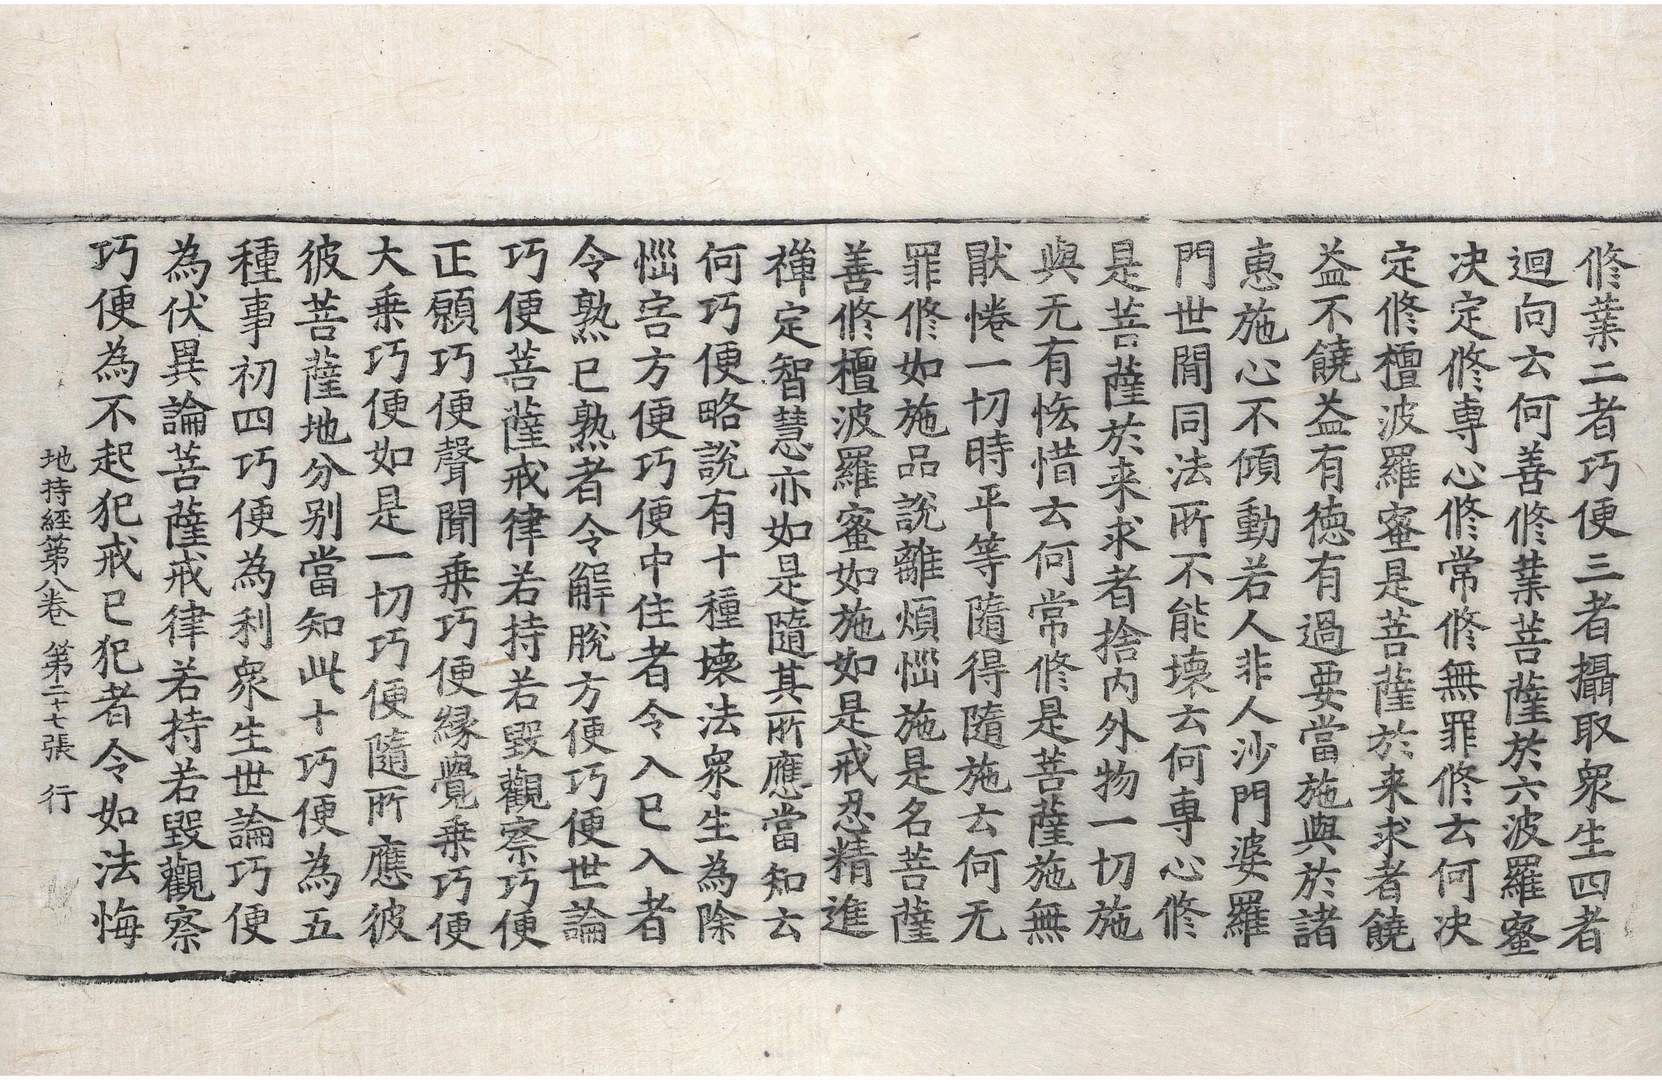 修業二者巧便三者攝取衆生四者
迴向云何善修業菩薩於六波羅蜜
决定修専心修常修無罪修云何决
定修檀波羅蜜是菩薩於来求者饒
益不饒益有徳有過要當施與於諸
恵施心不傾動若人非人沙門婆羅
門世間同法所不能壊云何専心修
是菩薩於来求者捨内外物一切施
與无有悋惜云何常修是菩薩施無
猒惓一切時平等隨得隨施云何无
罪修如施品說離煩惱施是名菩薩
善修檀波羅蜜如施如是戒忍精進
禪定智慧亦如是隨其所應當知云
何巧便略說有十種壊法衆生為除
惱害方便巧便中住者令入已入者
令熟已熟者令解脫方便巧便世論
巧便菩薩戒律若持若毀觀察巧便
正願巧便聲聞乗巧便縁覺乗巧便
大乗巧便如是一切巧便隨所應彼
彼菩薩地分别當知此十巧便為五
種事初四巧便為利衆生世論巧便
為伏異論菩薩戒律若持若毀觀察
巧便為不起犯戒已犯者令如法悔
地持經第八卷 第二十七張 行